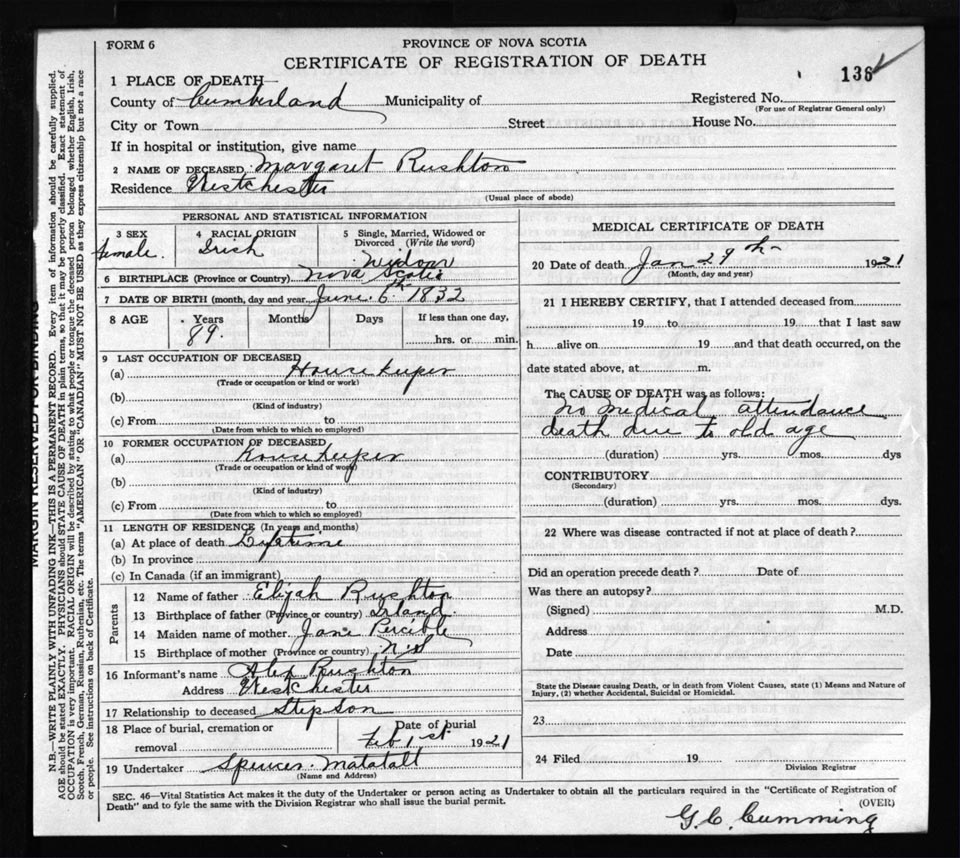 FORM 6
PROVINCE OF NOVA SCOTIA
CERTIFICATE OF REGISTRATION OF DEATH
136
1 PLACE OF DEATH—
County of Cumberland Municipality of Registered No.
(For use of Registrar General only)
City or Town Street House No.
If in hospital or institution, give name
2 NAME OF DECEASED Margaret Rushton
Residence Westchester
(Usual place of abode)
PERSONAL AND STATISTICAL INFORMATION
3 SEX
female.
4 RACIAL ORIGIN
Irish
5 Single, Married, Widowed or
Divorced (Write the word)
widow
6 BIRTHPLACE (Province or Country) Nova Scotia
7 DATE OF BIRTH (month, day and year) June 6th 1832
8 AGE Years Months Days If less than one day,
89. hrs. or min.
9 LAST OCCUPATION OF DECEASED
(a) Housekeeper
(Trade or occupation or kind or work)
(b)
(Kind of industry)
(c) From to
(Date from which to which so employed)
10 FORMER OCCUPATION OF DECEASED
(a) Housekeeper
(Trade or occupation or kind of work)
(b)
(Kind of industry)
(c) From to
(Date from which to which so employed)
11 LENGTH OF RESIDENCE (In years and months)
(a) At place of death Lifetime
(b) In province
(c) In Canada (if an immigrant)
Parents
12 Name of father Elijah Rushton
13 Birthplace of father (Province or country) Irland.
14 Maiden name of mother Jane
15 Birthplace of mother (Province or country) N.S
16 Informant's name Alex Rushton
Address Westchester
17 Relationship to deceased Step Son
18 Place of burial, cremation or
removal
Date of burial
Feb 1st 1921
19 Undertaker Spencer Matatall
(Name and Address)
MEDICAL CERTIFICATE OF DEATH
20 Date of death Jan 29th 1921
(Month, day and year)
21 I HEREBY CERTIFY, that I attended deceased from
19 to 19 that I last saw
h alive on 19 and that death occurred, on the
date stated above, at m.
The CAUSE OF DEATH was as follows:
No Medical attendance
death due to old age
(duration) yrs. mos. dys
CONTRIBUTORY
(Secondary)
(duration) yrs. mos. dys.
22 Where was disease contracted if not at place of death?
Did an operation precede death? Date of
Was there an autopsy?
(Signed) M.D.
Address
Date
State the Disease causing Death, or in death from Violent Causes, state (1) Means and Nature of
Injury, (2) whether Accidental, Suicidal or Homicidal.
23
24 Filed 19
Division Registrar
SEC. 46—Vital Statistics Act makes it the duty of the Undertaker or person acting as Undertaker to obtain all the particulars required in the "Certificate of Registration of
Death" and to fyle the same with the Division Registrar who shall issue the burial permit.
(OVER)
G. C. Cumming
MARGIN RESERVED FOR BINDING
N.B.—WRITE PLAINLY WITH UNFADING INK—THIS IS A PERMANENT RECORD. Every item of information should be carefully supplied.
AGE should be stated EXACTLY. PHYSICIANS should STATE CAUSE OF DEATH in plain terms, so that it may be properly classified. Exact statement of
OCCUPATION is very important. RACIAL ORIGIN will be described by stating to what people or tongue the deceased person belonged, whether English, Irish,
Scotch, French, German, Russian, Ruthenian, etc. The terms "AMERICAN" OR "CANADIAN" MUST NOT BE USED as they express citizenship but not a race
or people. See instructions on back of Certificate.